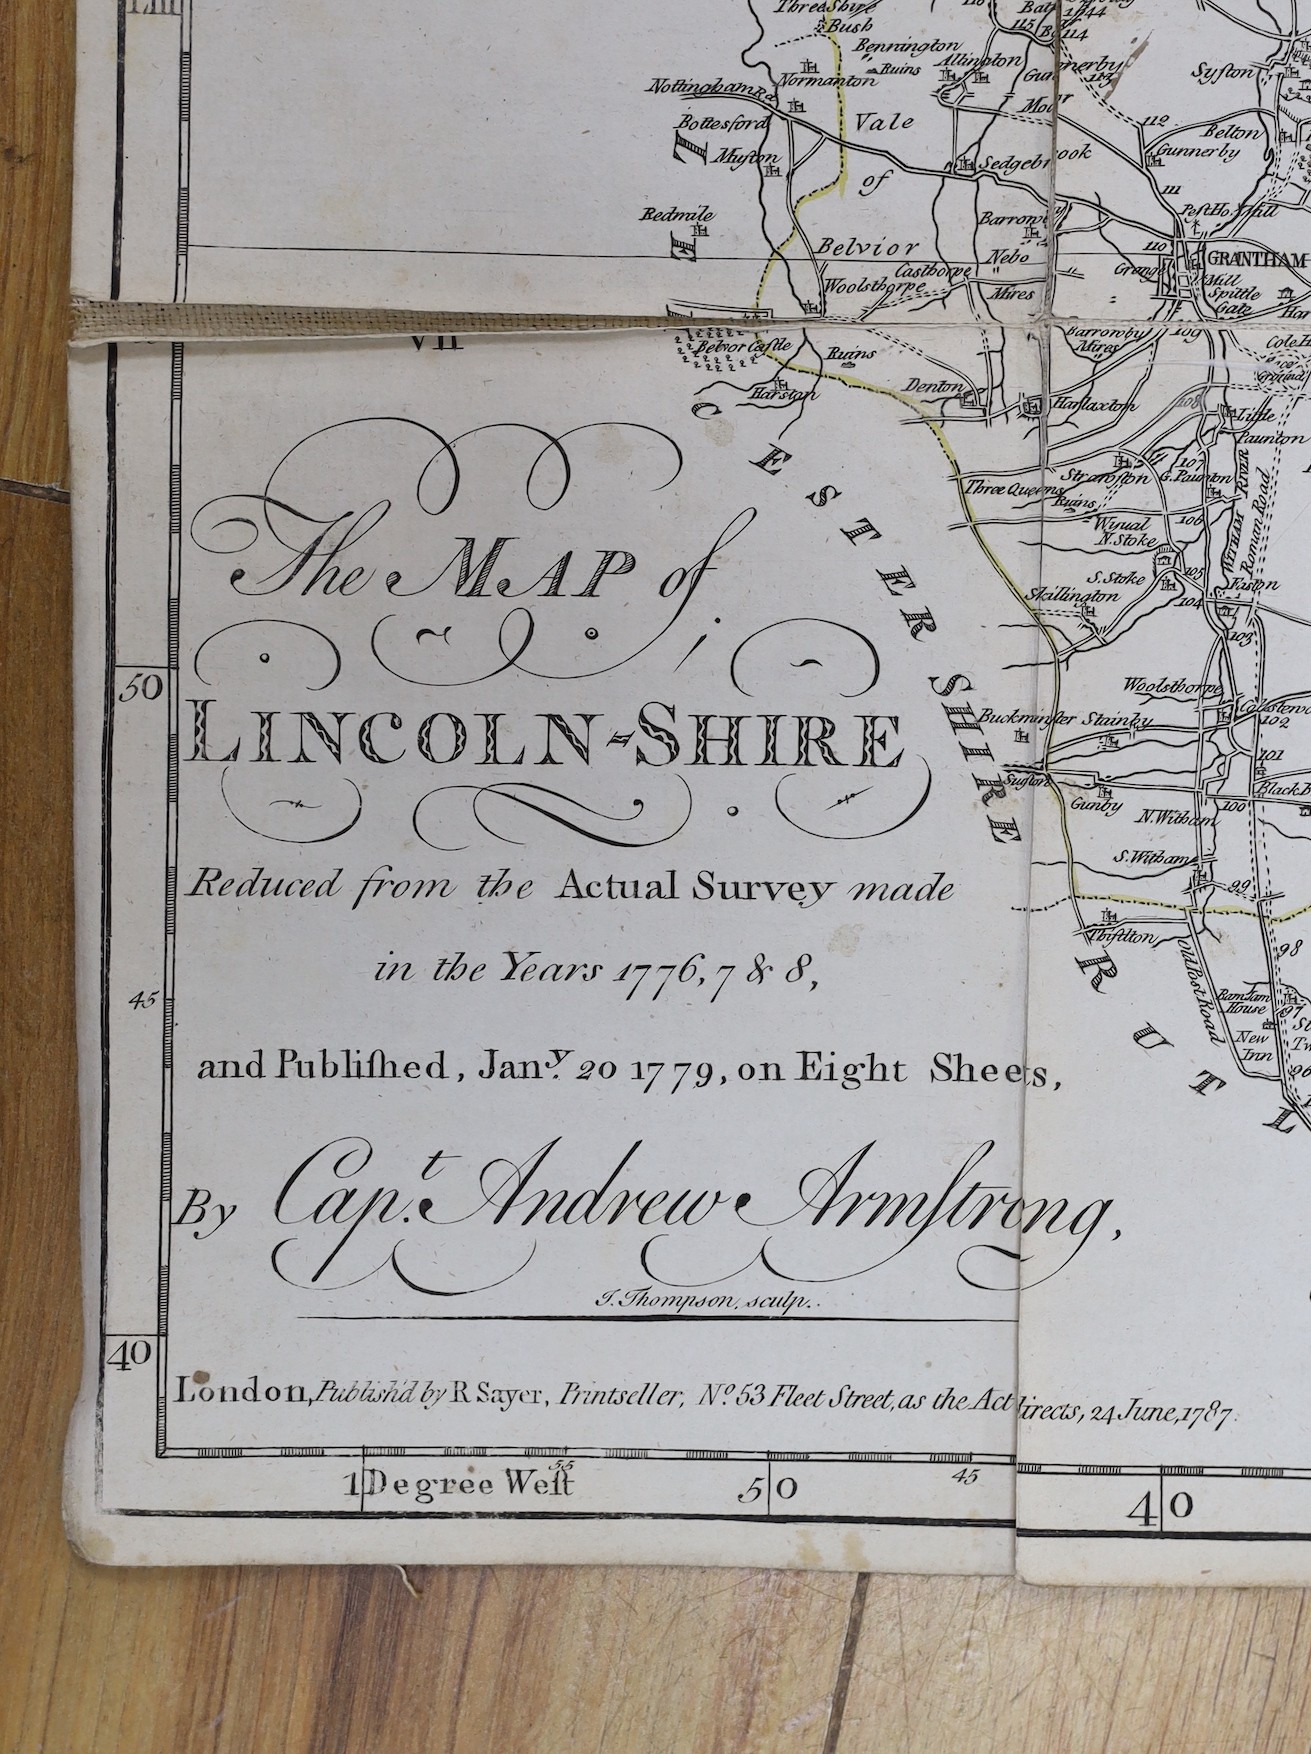 LIII
Three Shire
Bush
115
114
Bennington
Ruins
Allington
Gunnerby
113
Syston
Normanton
Nottingham Rd
Moor
Bottesford
Vale
112
Belton
Muston
Sedgebrook
Gunnerby
of
111
Redmile
Barrowby
Pest Ho.
Mill
E
Belvior
110
Nebo
GRANTHAM
Casthorpe
Grange
Woolsthorpe
Mires
Mill
Spittle
Gate
Har
VII
Barrowby
Mires
109
Cole H
Belvor Castle
Ruins
Harston
Denton
Harlaxton
108
Little
Paunton
107
Straw∫ton
G. Paunton
Three Queens
Ruins
106
Wyual
N. Stoke
WITHAM RIVER
Roman Road
S. Stoke
105
Easton
Skillington
104
103
CESTERSHIRE
The MAP of
LINCOLN-SHIRE
Woolsthorpe
Buckminster
Stainby
102
101
Suston
Gunby
100
Black B
N. Witham
S. Witham
99
Thistlton
Old Post Road
98
RUTL
Ram Jam
House
97
New
Inn
96
50
Reduced from the Actual Survey made
in the Years 1776, 7 & 8,
45
and Publiſhed, Jan.y 20 1779, on Eight Sheets,
By Cap.t Andrew Armſtrong,
J. Thompson, sculp.
40
London, Publish'd by R Sayer, Printseller, No. 53 Fleet Street, as the Act directs, 24 June, 1787.
1 Degree Weſt
55
50
45
40